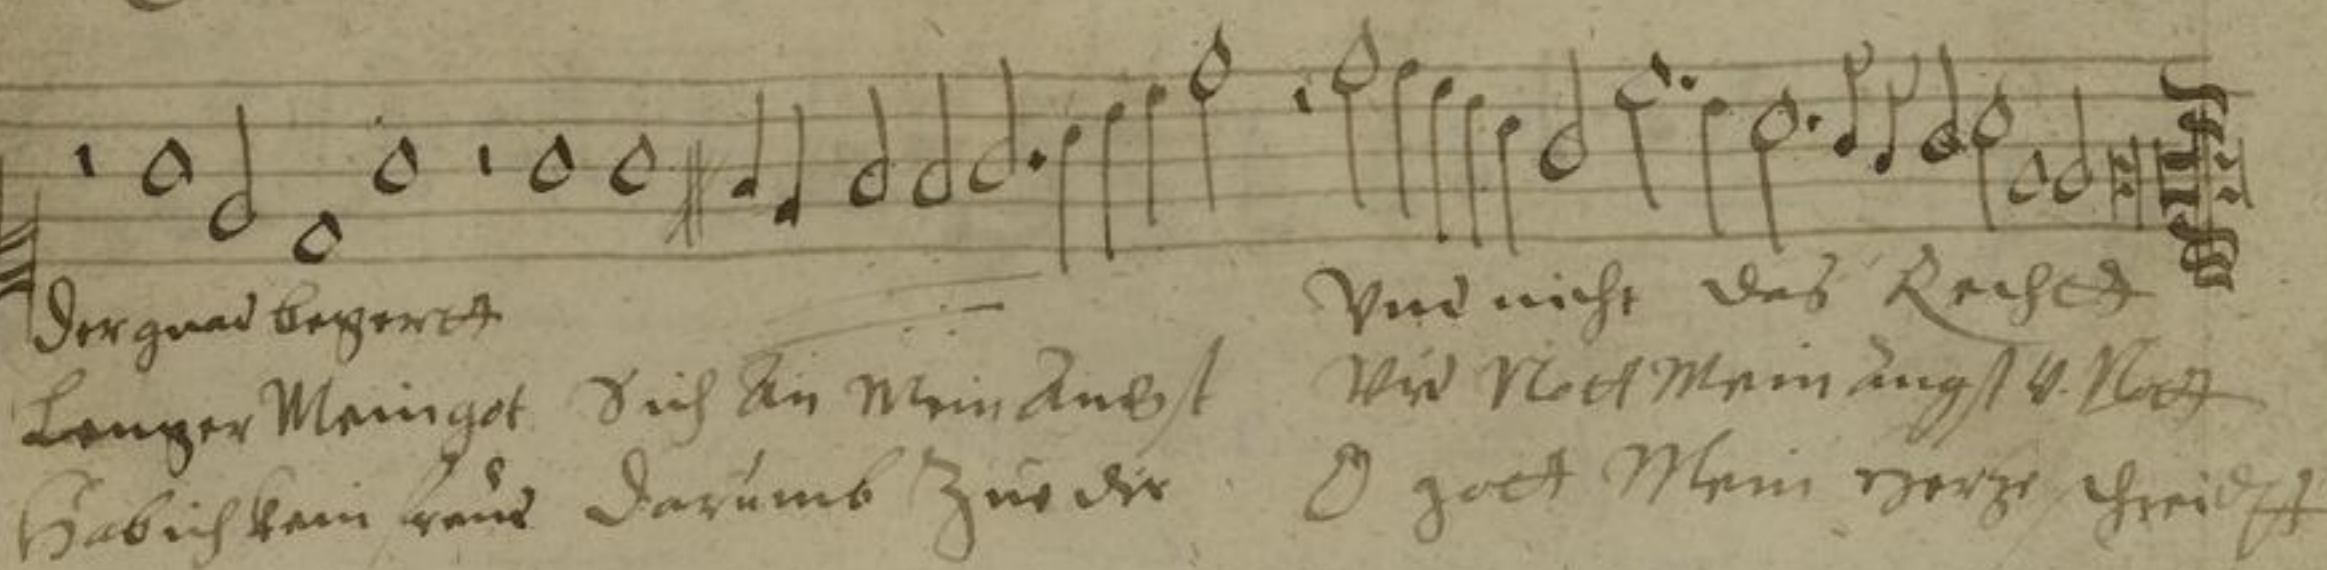 Der gnad begertt Vnd nicht des Rechtt
Lenger Mein got Sich An Mein Angst Vnd Nott Mein angst V. Nott
Hab ich kein freud Darumb Zue dir O gott Mein hertze schreidtt